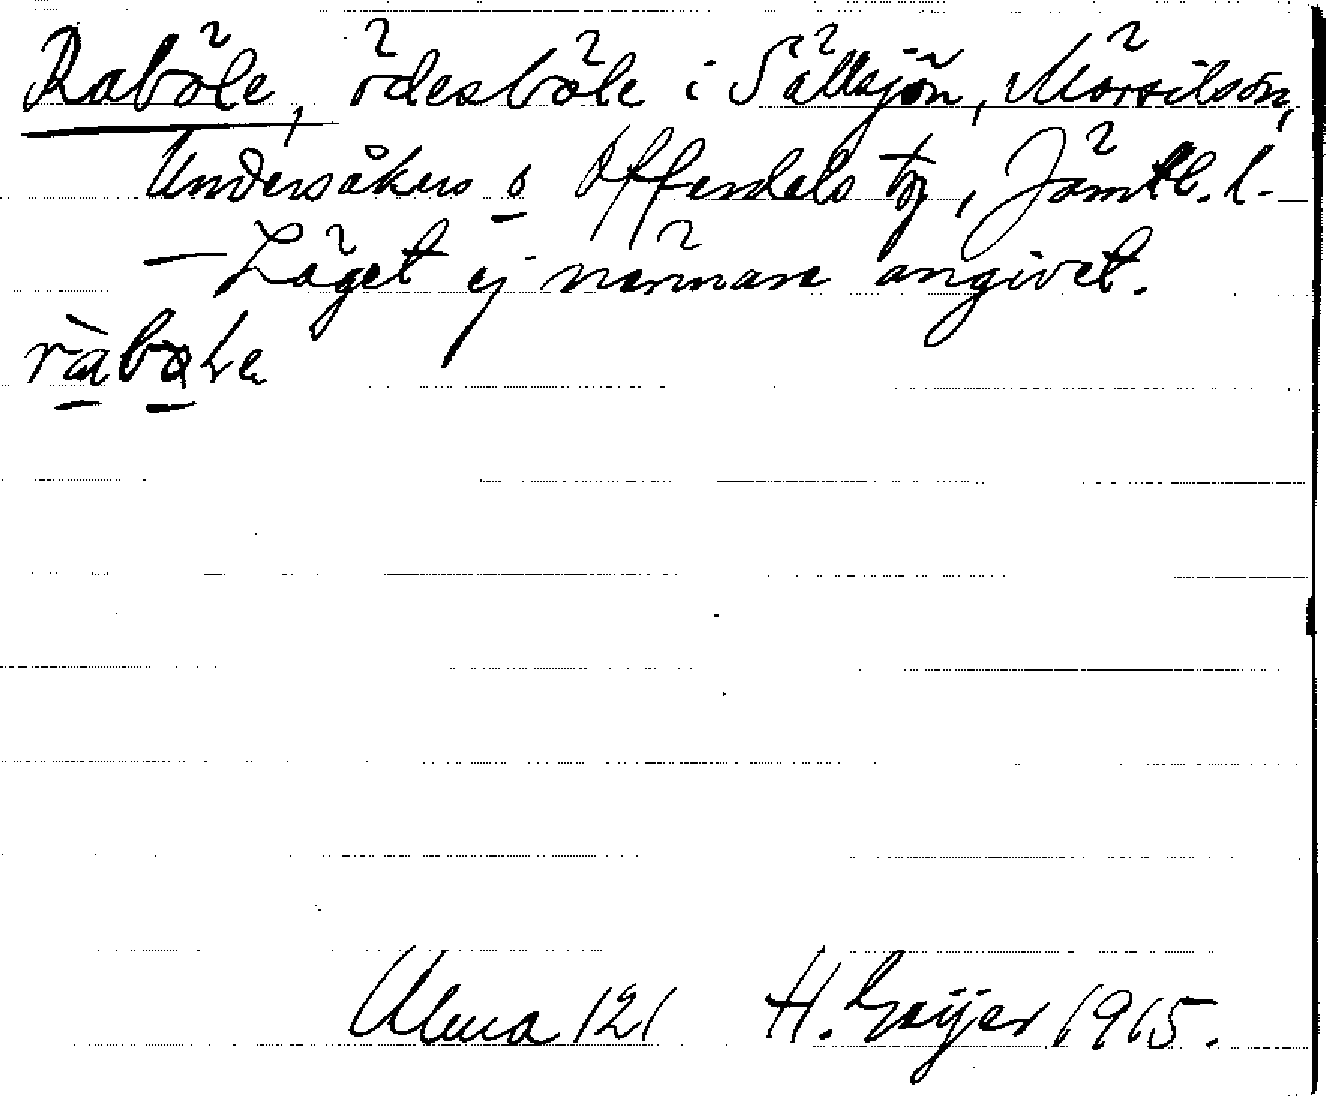 Raböle, ödesböle i Sällsjön, Mörsil sn,
Undersåkers o Offerdals tg, Jämtl. l.
— Läget ej närmare angivet.
ràbǫlɐ
H. Geijer 1915.